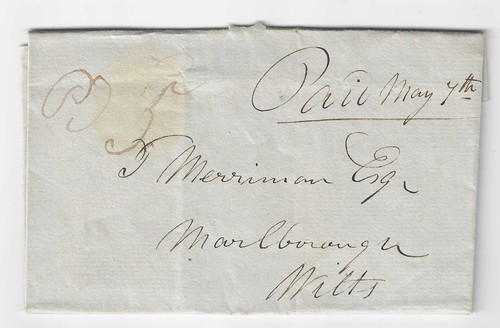 Paid May 7th
P 5
T Merriman Esqr
Marlborough
Wilts